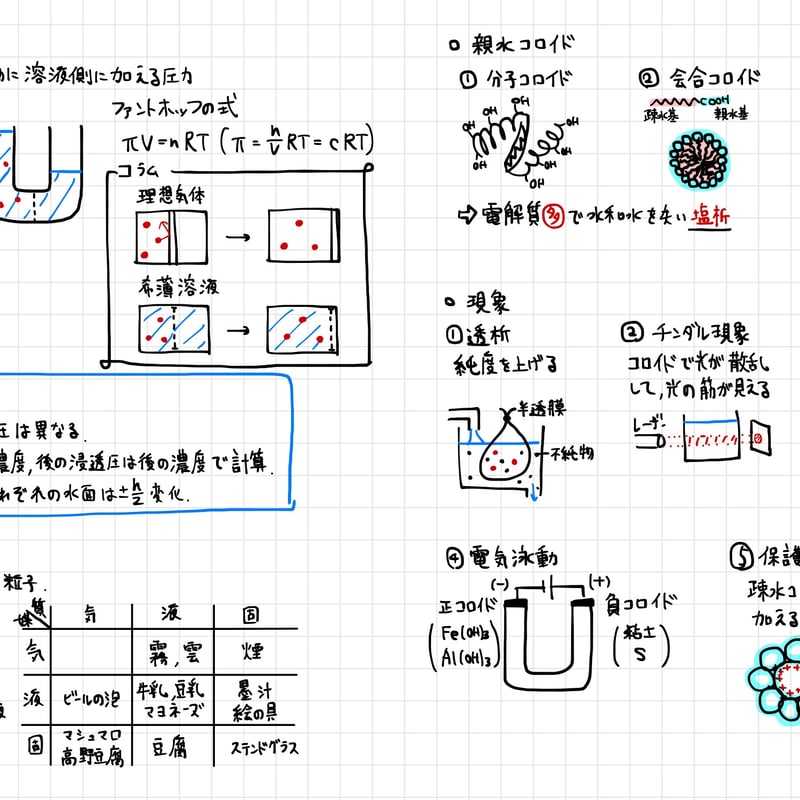 に溶液側に加える圧力
ファントホッフの式
πV=nRT (π=n/V RT=cRT)
コラム
理想気体
希薄溶液
圧は異なる.
濃度,後の浸透圧は後の濃度で計算.
れぞれの水面は±h/2変化.
粒子.
質
媒
気 液 固
気 霧,雲 煙
液 ビールの泡 牛乳,豆乳 マヨネーズ 墨汁 絵の具
固 マシュマロ 高野豆腐 豆腐 ステンドグラス
○ 親水コロイド
① 分子コロイド
OH OH OH OH OH OH OH OH
② 会合コロイド
COOH
疎水基 親水基
⇨ 電解質多で水和水を失い塩析
○ 現象
① 透析
純度を上げる
半透膜
不純物
② チンダル現象
コロイドで光が散乱
して,光の筋が見える
レーザー
④ 電気泳動
(-) (+)
正コロイド
Fe(OH)3
Al(OH)3
負コロイド
粘土
S
⑤ 保護
疎水コ
加える